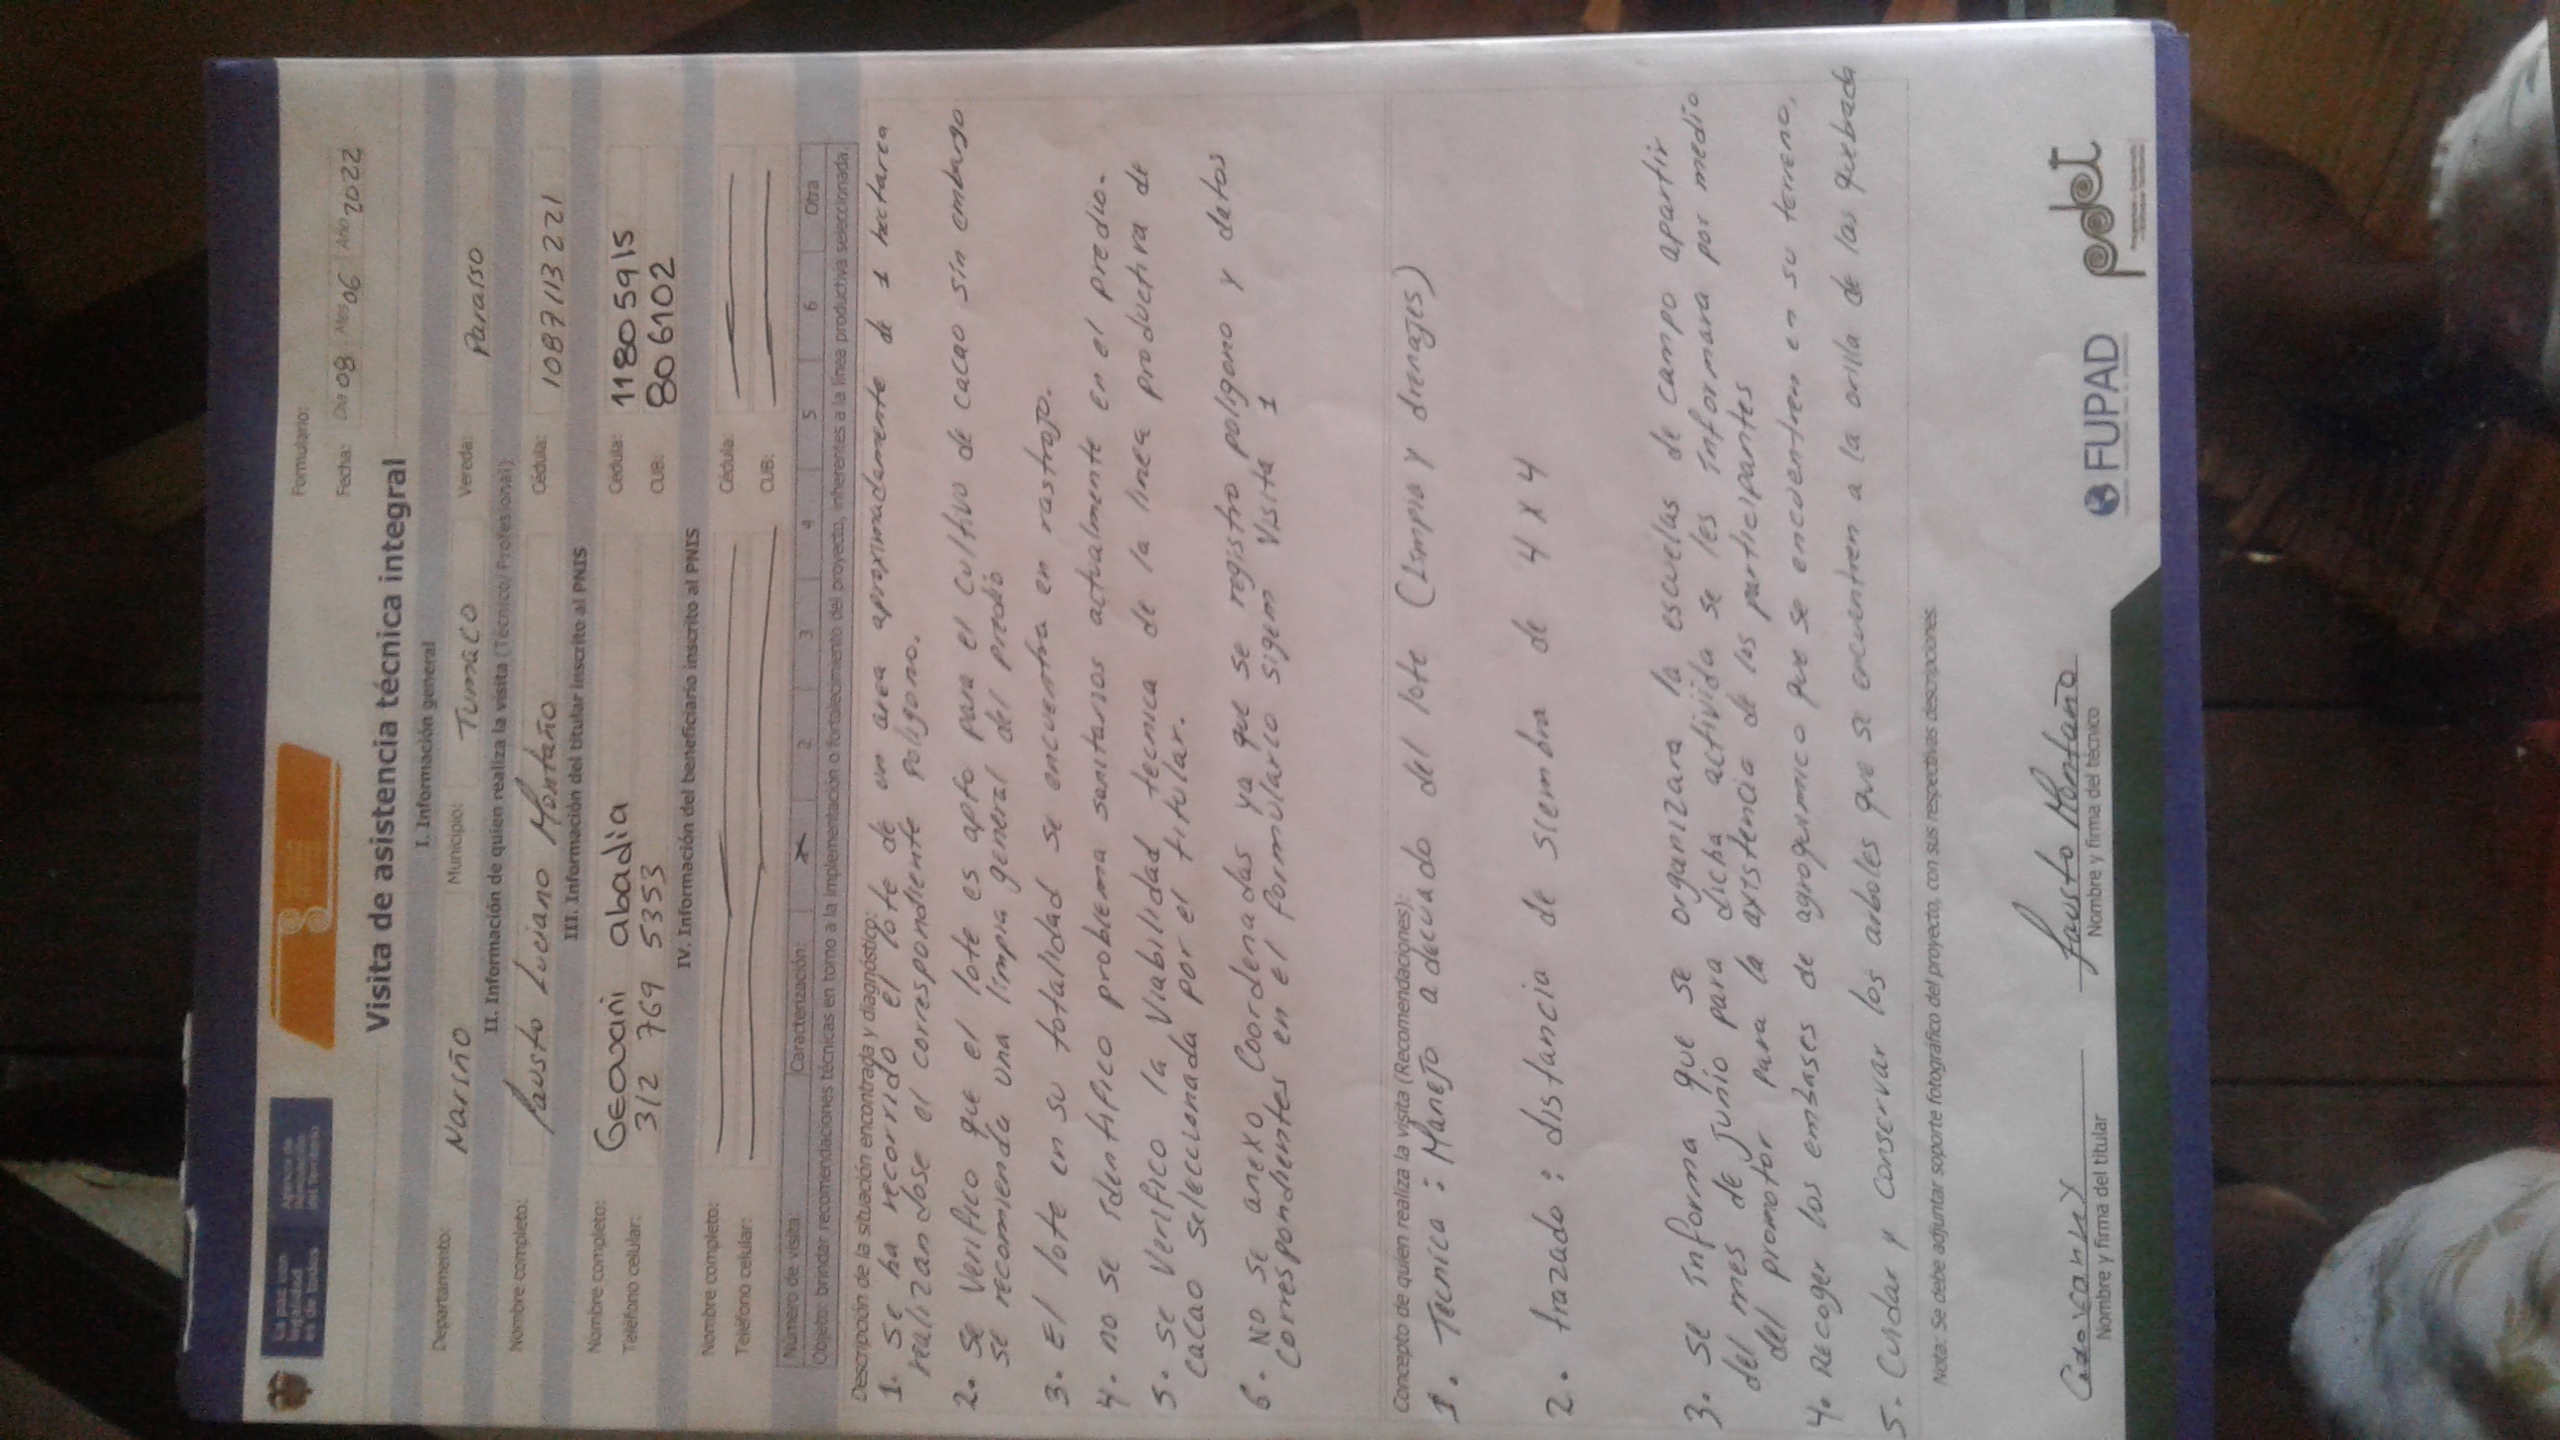 La paz con legalidad es de todos
Agencia de Renovación del Territorio
Formulario:
Fecha: Día 08 Mes 06 Año 2022
Visita de asistencia técnica integral
I. Información general
Departamento: Nariño Municipio: Tumaco Vereda: Paraiso
II. Información de quien realiza la visita (Técnico/Profesional)
Nombre completo: Fausto Luciano Montaño Cédula: 1087113221
III. Información del titular inscrito al PNIS
Nombre completo: Geovani abadia Cédula: 118059915
Teléfono celular: 312 769 5353 CUB: 806102
IV. Información del beneficiario inscrito al PNIS
Nombre completo: Cédula:
Teléfono celular: CUB:
Número de visita: Caracterización: x 2 3 4 5 6 Otra
Objeto: brindar recomendaciones técnicas en torno a la implementación o fortalecimiento del proyecto, inherentes a la línea productiva seleccionada.
Descripción de la situación encontrada y diagnóstico:
1. se ha recorrido el lote de un area aproximadamente de 1 hectarea
realizandose el correspondiente poligono.
2. se Verifico que el lote es apto para el cultivo de cacao sin embargo
se recomienda una limpia general del predio
3. El lote en su totalidad se encuentra en rastrojo.
4. no se identifico problema sanitarios actualmente en el predio.
5. se Verifico la Viabilidad tecnica de la linea productiva de
cacao seleccionada por el titular.
6. No se anexo Coordenadas ya que se registro poligono y datos
correspondientes en el formulario sigem Visita 1
Concepto de quien realiza la visita (Recomendaciones):
1. Tecnica : Manejo adecuado del lote (limpia y drenajes)
2. trazado : distancia de siembra de 4 x 4
3. se informa que se organizara la escuelas de campo apartir
del mes de junio para dicha activida se les informara por medio
del promotor para la axistencia de los participantes
4. Recoger los embases de agroquimico que se encuentren en su terreno.
5. Cuidar y conservar los arboles que se encuentren a la orilla de las quebrada
Nota: Se debe adjuntar soporte fotográfico del proyecto, con sus respectivas descripciones.
Fausto Montaño
Nombre y firma del titular Nombre y firma del técnico
FUPAD
pdet